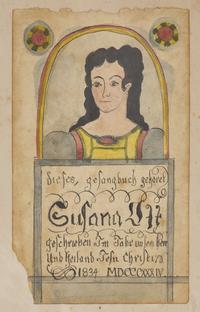 Dieses, gesangbuch gehöret
Susana
geschrieben Im Jahr unsen herr
Und Heiland Jesu Christi
1834 MDCCCXXXIV